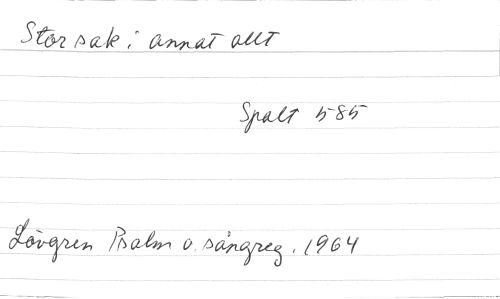 Stor sak i annat allt
Spalt 585
Lövgren Psalm o. sångreg. 1964